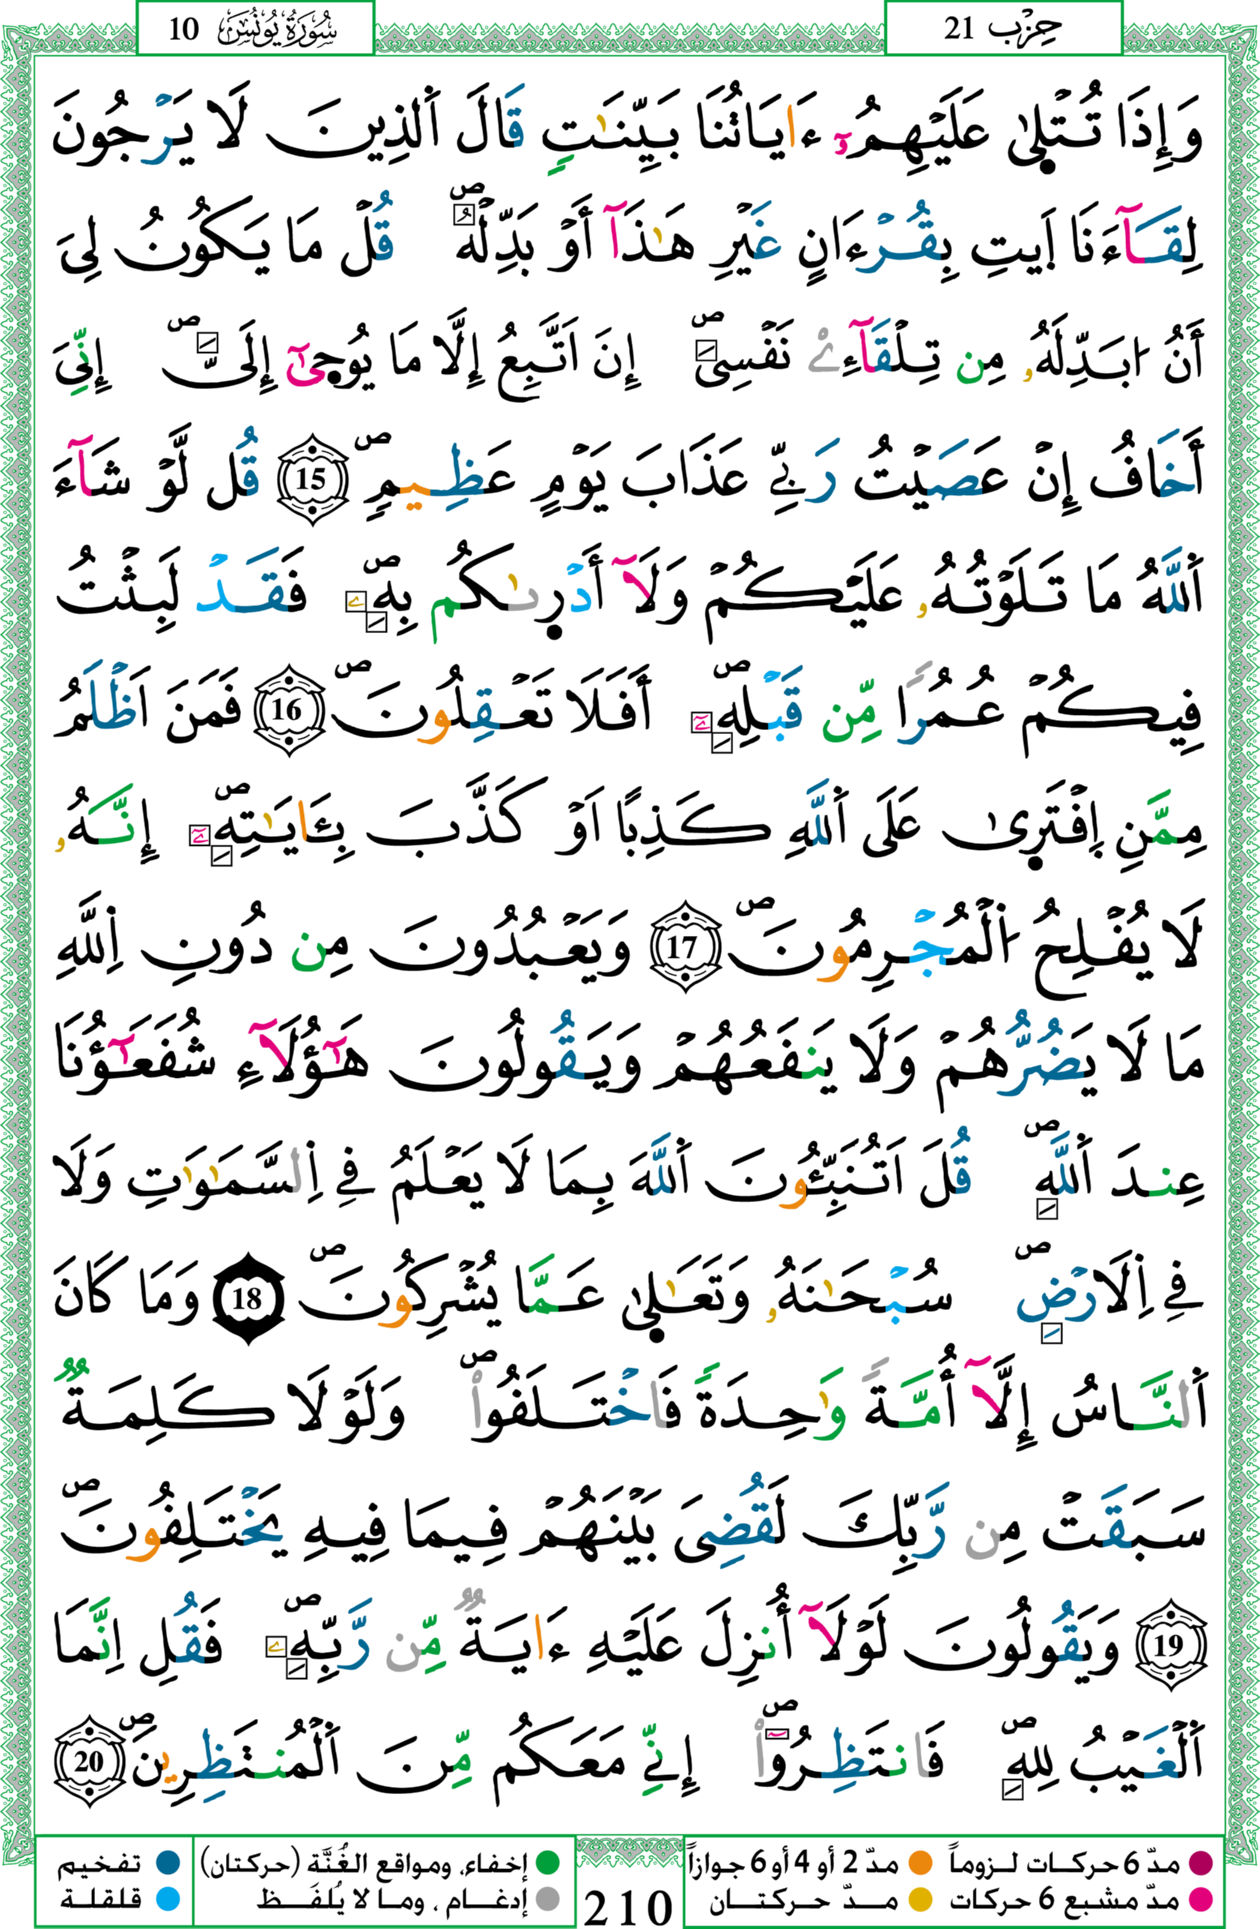 حِزْب 21
سُورَةُ يُونُسَ 10
وَإِذَا تُتْلَىٰ عَلَيْهِمُۥٓ ءَايَاتُنَا بَيِّنَٰتٖ قَالَ اَ۬لذِينَ لَا يَرْجُونَ
لِقَآءَنَا اَ۪يتِ بِقُرْءَانٍ غَيْرِ هَٰذَآ أَوْ بَدِّلْهُۖ قُلْ مَا يَكُونُ لِيَ
أَنُ ا۟بَدِّلَهُۥ مِن تِلْقَآءِےْ نَفْسِيَۖ إِنَ اَتَّبِعُ إِلَّا مَا يُوحَىٰٓ إِلَيَّۖ إِنِّيَ
أَخَافُ إِنْ عَصَيْتُ رَبِّے عَذَابَ يَوْمٍ عَظِيمٖۖ 15 قُل لَّوْ شَآءَ
اَ۬للَّهُ مَا تَلَوْتُهُۥ عَلَيْكُمْ وَلَآ أَدْر۪ىٰكُم بِهِۦۖ فَقَدْ لَبِثْتُ
فِيكُمْ عُمُراٗ مِّن قَبْلِهِۦٓۖ أَفَلَا تَعْقِلُونَۖ 16 فَمَنَ اَظْلَمُ
مِمَّنِ اِ۪فْتَر۪ىٰ عَلَى اَ۬للَّهِ كَذِباً اَوْ كَذَّبَ بِـَٔايَٰتِهِۦٓۖ إِنَّهُۥ
لَا يُفْلِحُ اُ۬لْمُجْرِمُونَۖ 17 وَيَعْبُدُونَ مِن دُونِ اِ۬للَّهِ
مَا لَا يَضُرُّهُمْ وَلَا يَنفَعُهُمْ وَيَقُولُونَ هَٰٓؤُلَآءِ شُفَعَٰٓؤُنَا
عِندَ اَ۬للَّهِۖ قُلَ اَتُنَبِّـُٔونَ اَ۬للَّهَ بِمَا لَا يَعْلَمُ فِے اِ۬لسَّمَٰوَٰتِ وَلَا
فِے اِ۬لَارْضِۖ سُبْحَٰنَهُۥ وَتَعَٰلَىٰ عَمَّا يُشْرِكُونَۖ 18 وَمَا كَانَ
اَ۬لنَّاسُ إِلَّآ أُمَّةٗ وَٰحِدَةٗ فَاخْتَلَفُواْۖ وَلَوْلَا كَلِمَةٞ
سَبَقَتْ مِن رَّبِّكَ لَقُضِيَ بَيْنَهُمْ فِيمَا فِيهِ يَخْتَلِفُونَۖ
19 وَيَقُولُونَ لَوْلَآ أُنزِلَ عَلَيْهِ ءَايَةٞ مِّن رَّبِّهِۦۖ فَقُلِ اِنَّمَا
اَ۬لْغَيْبُ لِلهِۖ فَانتَظِرُوٓاْۖ إِنِّے مَعَكُم مِّنَ اَ۬لْمُنتَظِرِينَۖ 20
مدّ 6 حركات لـزوماً مدّ 2 أو 4 أو 6 جوازاً
مدّ مشبع 6 حركات مـدّ حركتـان
210
إخفاء، ومواقع الغُنَّة (حركتان)
إدغام ، وما لا يُلفَـظ
تفخيم
قلقلة